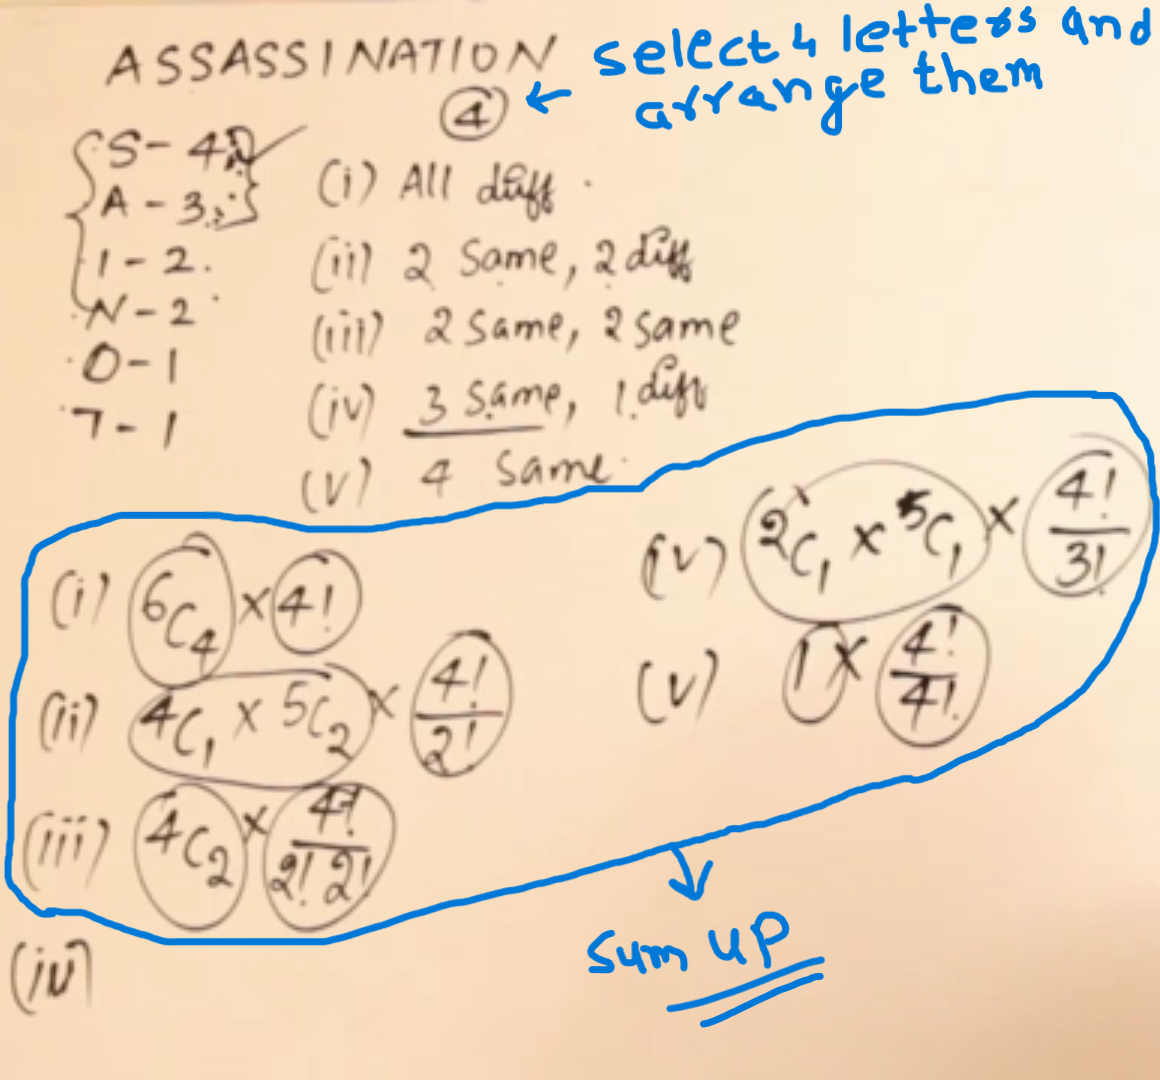 ASSASSINATION
select 4 letters and
arrange them
④ ←
S - 4
A - 3
I - 2
N - 2
O - 1
T - 1
(i) All diff
(ii) 2 same, 2 diff
(iii) 2 same, 2 same
(iv) 3 same, 1 diff
(v) 4 same
(i) ⁶C₄ × 4!
(ii) ⁴C₁ × ⁵C₂ × 4!/2!
(iii) ⁴C₂ × 4!/2! 2!
(iv)
(iv) ²C₁ × ⁵C₁ × 4!/3!
(v) 1 × 4!/4!
sum up